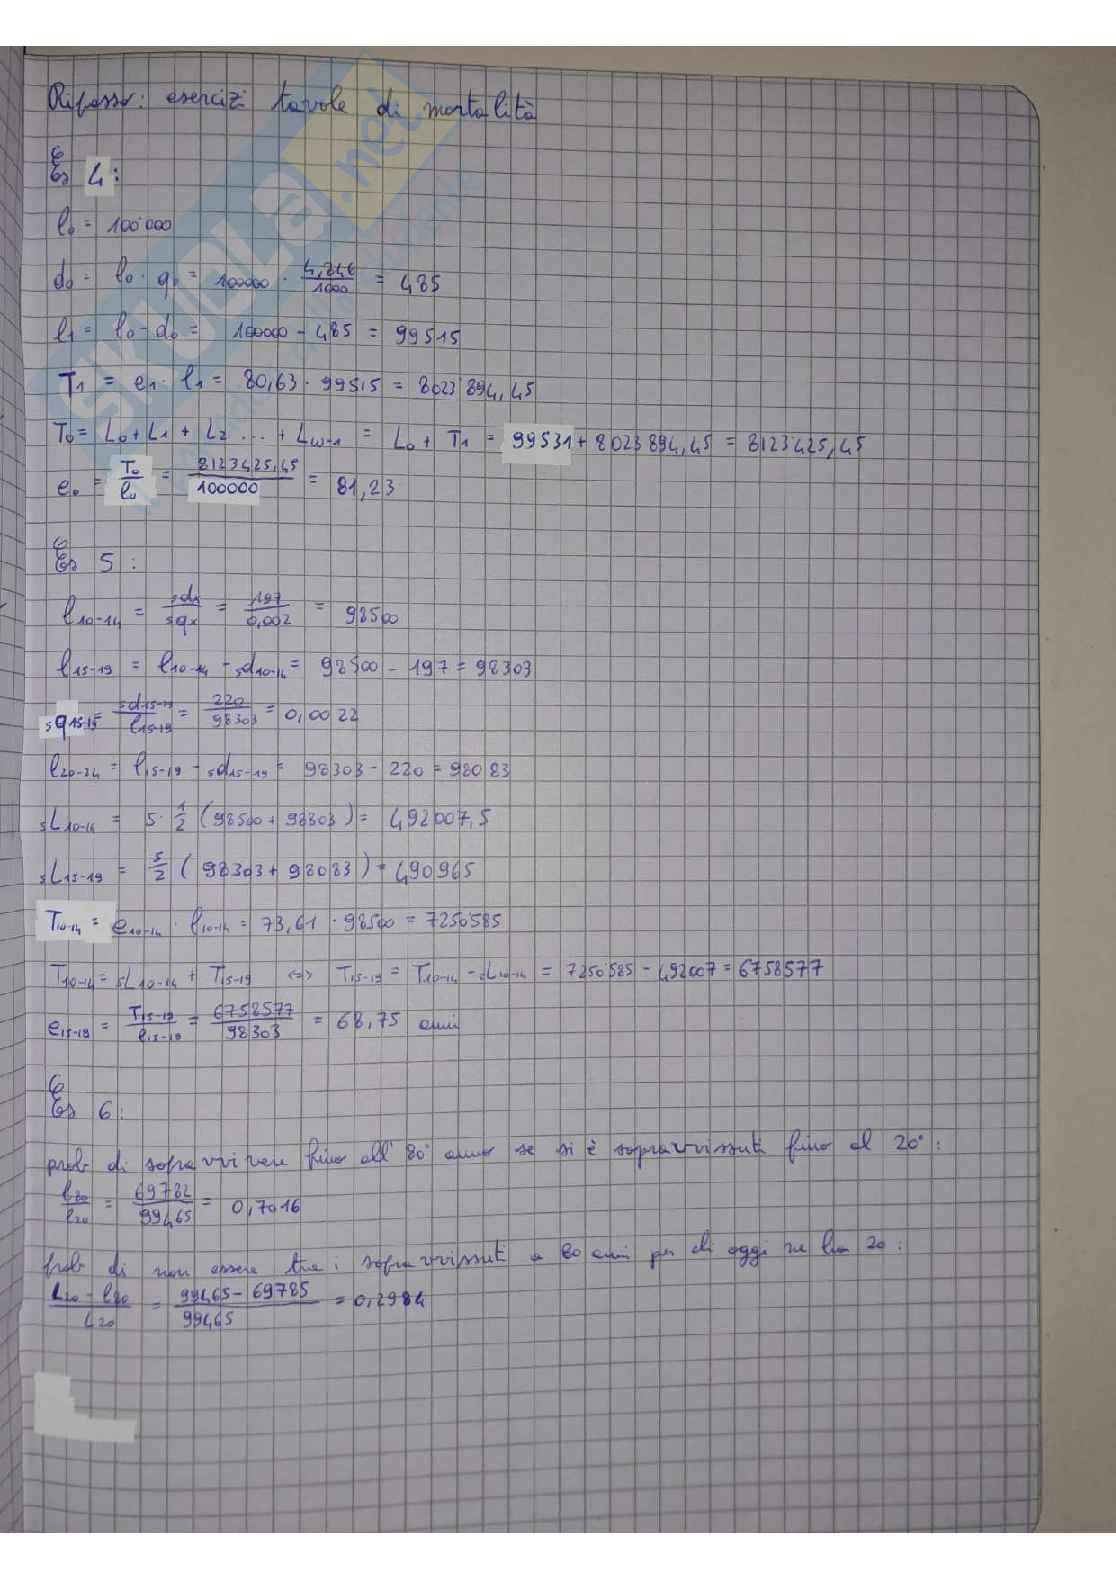 Ripasso: esercizi tavole di mortalità
Es 4:
l₀ = 100'000
d₀ = l₀ · q₀ = 100000 · 4,846/1000 = 485
l₁ = l₀ - d₀ = 100000 - 485 = 99515
T₁ = e₁ · l₁ = 80,63 · 99515 = 8023'894,45
T₀ = L₀ + L₁ + L₂ ... + Lω-1 = L₀ + T₁ = 99531 + 8023894,45 = 8123425,45
e₀ = T₀/l₀ = 8123425,45/100000 = 81,23
Es 5:
l10-14 = 5dx/5qx = 197/0,002 = 98500
l15-19 = l10-14 - 5d10-14 = 98500 - 197 = 98303
5q15-19 = 5d15-19/l15-19 = 220/98303 = 0,0022
l20-24 = l15-19 - 5d15-19 = 98303 - 220 = 98083
5L10-14 = 5 · 1/2 (98500 + 98303) = 492007,5
5L15-19 = 5/2 (98303 + 98083) = 490965
T10-14 = e10-14 · l10-14 = 73,61 · 98500 = 7250'585
T10-14 = 5L10-14 + T15-19 <=> T15-19 = T10-14 - 5L10-14 = 7250'585 - 492007 = 6758577
e15-19 = T15-19/l15-19 = 6758577/98303 = 68,75 anni
Es 6:
prob di sopravvivere fino all' 80° anno se si è sopravvissuti fino al 20°:
l80/l20 = 69782/99465 = 0,7016
prob di non essere tra i sopravvissuti a 80 anni per chi oggi ne ha 20:
L20 - l80/L20 = 99465 - 69785/99465 = 0,2984
SKUOLA.net